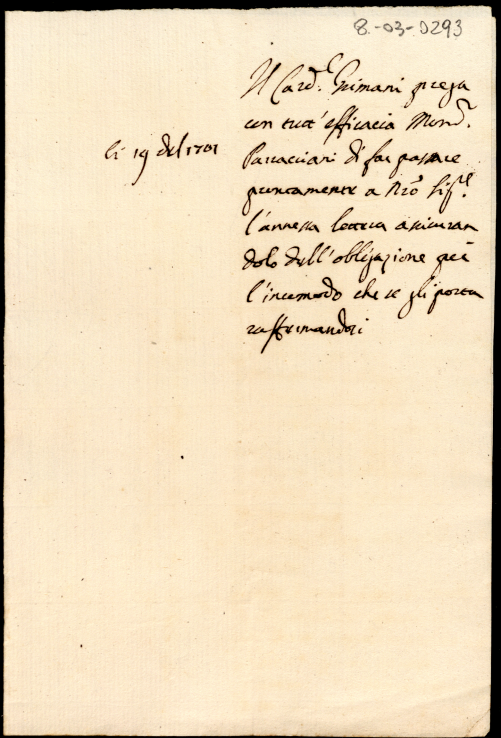 8-03-0293
Il Card.l Grimani prega
con tutt'efficacia Mons.r
Paracciani di far passare
puntamente a Nrõ Sig.re
li 19 del 1701
l'annessa lettera assicuran
dolo dell'obligazione per
l'incomodo che se gli porta
raffermandosi